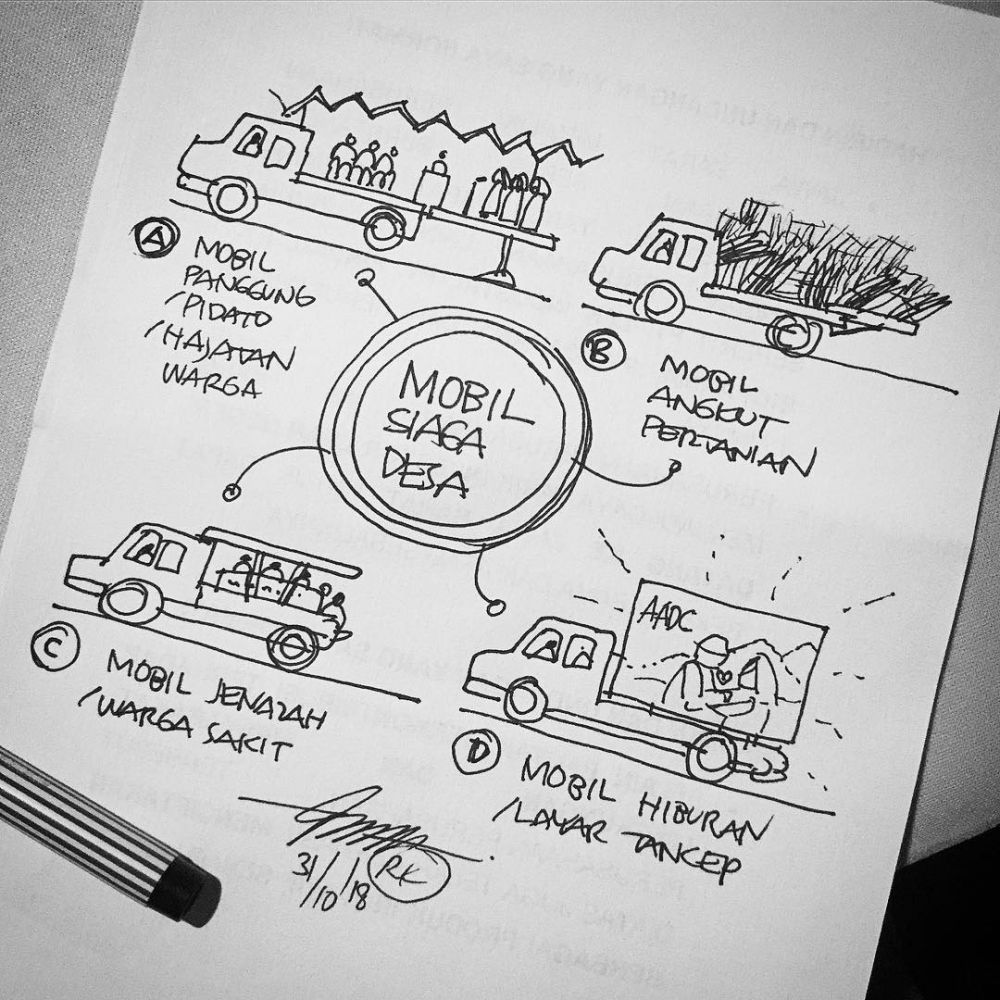 MOBIL
SIAGA
DESA
A
MOBIL
PANGGUNG
/PIDATO
/HAJATAN
WARGA
B
MOBIL
ANGKUT
PERTANIAN
C
MOBIL JENAZAH
/WARGA SAKIT
AADC
D
MOBIL HIBURAN
/LAYAR TANCEP
31/10/18
RK